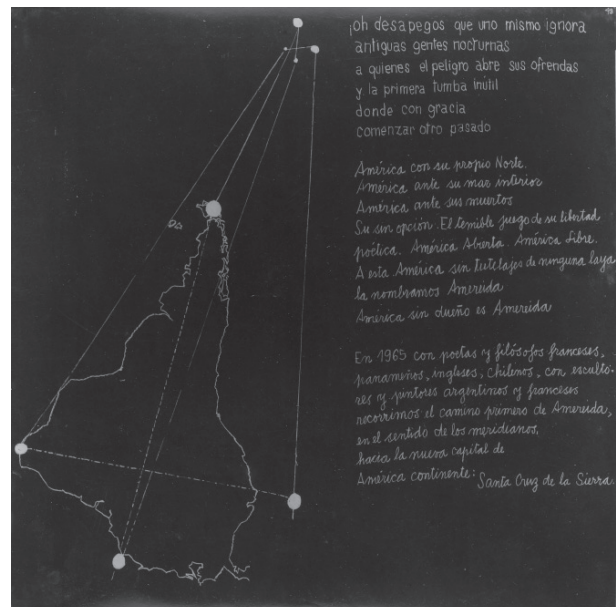 ¡oh desapegos que uno mismo ignora
antiguas gentes nocturnas
a quienes el peligro abre sus ofrendas
y la primera tumba inútil
donde con gracia
comenzar otro pasado
América con su propio Norte.
América ante su mar interior
América ante sus muertos
Su sin opción. El temible juego de su libertad
poética. América Abierta. América Libre.
A esta América sin tutelajes de ninguna laya
la nombramos Amereida
América sin dueño es Amereida
En 1965 con poetas y filósofos franceses,
panameños, ingleses, chilenos, con esculto-
res y pintores argentinos y franceses
recorrimos el camino primero de Amereida,
en el sentido de los meridianos,
hacia la nueva capital de
América continente: Santa Cruz de la Sierra.